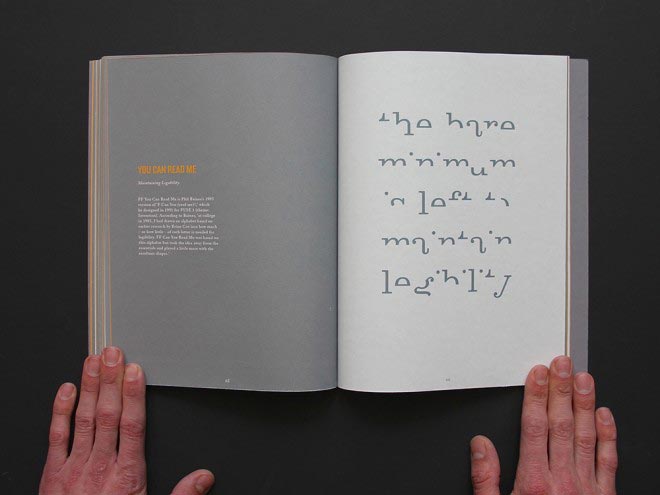 YOU CAN READ ME
Maintaining Legibility
FF You Can Read Me is Phil Baines' 1995
version of 'F Can You (read me?)', which
he designed in 1991 for FUSE 1 (theme:
Invention). According to Baines, 'at college
in 1985, I had drawn an alphabet based on
earlier research by Brian Coe into how much
– or how little – of each letter is needed for
legibility. FF Can You Read Me was based on
this alphabet but took the idea away from the
essentials and played a little more with the
resultant shapes.'
the bare
minimum
is left to
maintain
legibility